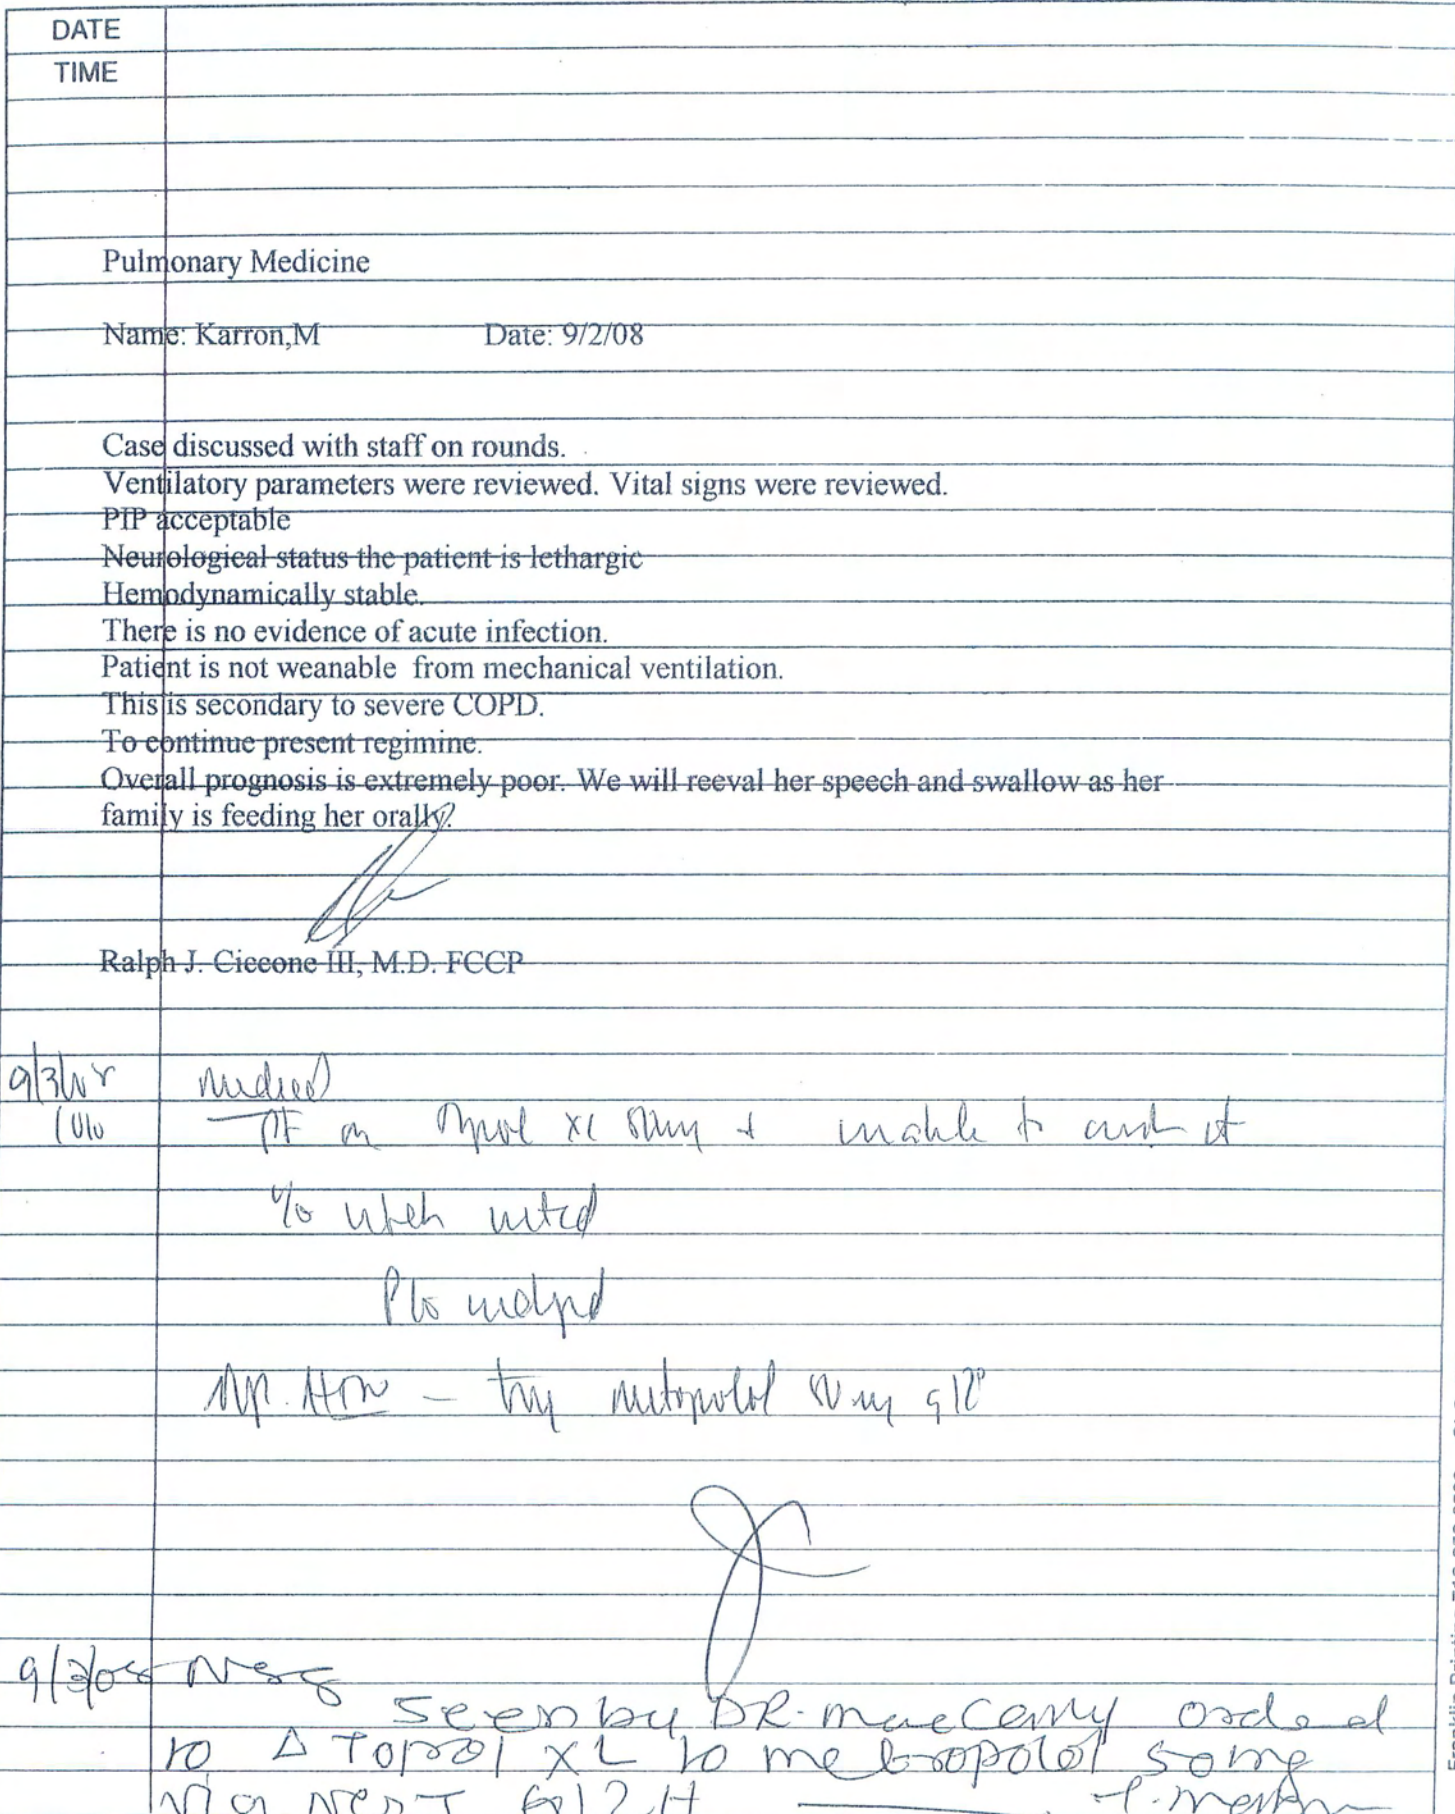 DATE
TIME
Pulmonary Medicine
Name: Karron,M Date: 9/2/08
Case discussed with staff on rounds.
Ventilatory parameters were reviewed. Vital signs were reviewed.
PIP acceptable
Neurological status the patient is lethargic
Hemodynamically stable.
There is no evidence of acute infection.
Patient is not weanable from mechanical ventilation.
This is secondary to severe COPD.
To continue present regimine.
Overall prognosis is extremely poor. We will reeval her speech and swallow as her
family is feeding her orally.
Ralph J. Ciccone III, M.D. FCCP
9/3/08
PT on Toprol XL 50mg + unable to crush it
HTN – try metoprolol 50 mg q12°
9/3/08 NSG
Seen by DR. ordered
to Δ Toprol XL to metoprolol 50mg
via Q12H